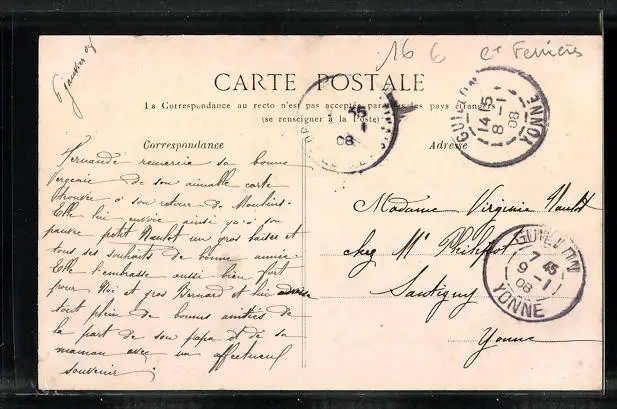 6 janvier 08
16 €
CARTE POSTALE
La Correspondance au recto n'est pas acceptée par tous les pays étrangers
(se renseigner à la Poste)
Correspondance
Adresse
Fernande remercie sa bonne
Vergenie de son aimable carte
trouvée à son retour de Moulins.
Elle lui envoie ainsi qu'à son
pauvre petit Naulot un gros baiser et
tous ses souhaits de bonne année
Elle l'embrasse aussi bien fort
pour et gros Bernard et lui adresse
tout plein de bonnes amitiés de
la part de son papa et de sa
maman avec un affectueux
souvenir.
Madame Virginie Naulot
chez Mr Philippot
Santigny
Yonne
GUILLON
14 15
8 - 1
08
YONNE
45
08
GUILLON
7 45
9 - 1
08
YONNE